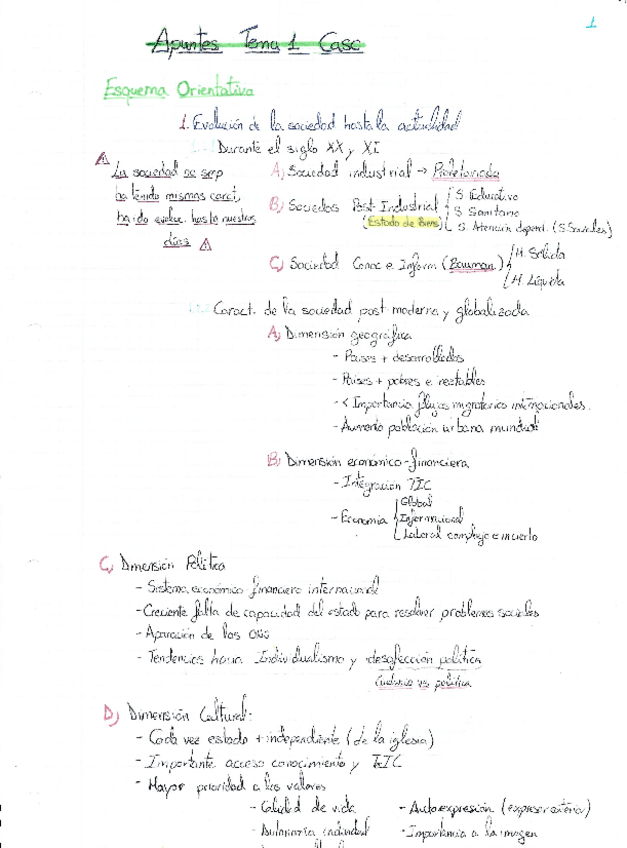 1
Apuntes Tema 1 Casc
Esquema Orientativo
1. Evolución de la sociedad hasta la actualidad
Durante el siglo XX y XI
⚠ La sociedad no
ha tenido mismas caract,
ha ido evoluc. hasta nuestros
días ⚠
A) Sociedad industrial → Proletariado
B) Sociedad Post Industrial
(Estado de Bienes)
S Educativo
S Sanitario
S. Atención depend. (S Sociales)
C) Sociedad Conoc e Inform (Bauman)
M. Sólida
M Líquida
Caract. de la sociedad post moderna y globalizada
A) Dimensión geográfica
- Países + desarrollados
- Países + pobres e inestables
- < Importancia flujos migratorios internacionales.
- Aumento población urbana mundial
B) Dimensión económico-financiera
- Integración TIC
- Economía
Global
Informacional
Laboral complejo e incierto
C) Dimensión Política
- Sistema económico financiero internacional
- Creciente falta de capacidad del estado para resolver problemas sociales
- Aparición de las ONG
- Tendencias hacia Individualismo y desafección política
Ciudadano vs política
D) Dimensión Cultural:
- Cada vez estado + independiente (de la iglesia)
- Importante acceso conocimiento y TIC
- Mayor prioridad a los valores
- Calidad de vida
- Autoexpresión (expresar
- Autonomía individual
- Importancia a la imagen